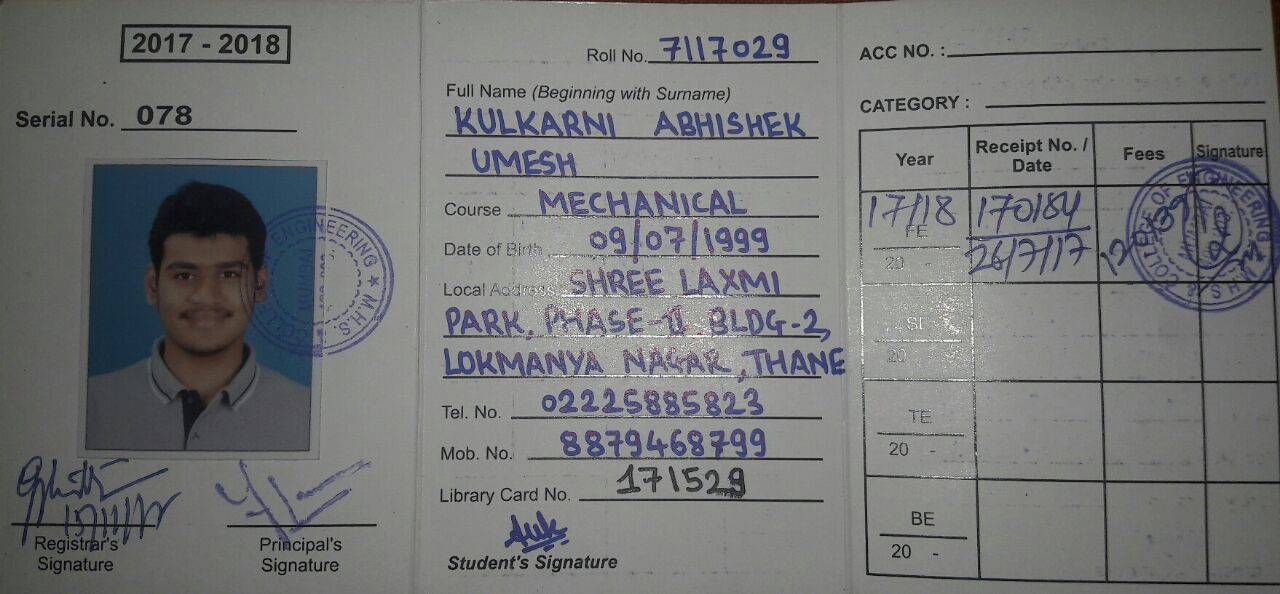 2017 - 2018
Serial No. 078
ENGINEERING ★ M.H.S.
Registrar's
Signature
Principal's
Signature
Roll No. 7117029
Full Name (Beginning with Surname)
KULKARNI ABHISHEK
UMESH
Course MECHANICAL
Date of Birth 09/07/1999
Local Address SHREE LAXMI
PARK, PHASE-II BLDG-2,
LOKMANYA NAGAR, THANE
Tel. No. 02225885823
Mob. No. 8879468799
Library Card No. 171529
Student's Signature
ACC NO. :
CATEGORY :
Year Receipt No. / Date Fees Signature
17/18 170184
FE
20 - 26/7/17
COLLEGE OF ENGINEERING ★ M.H.S.
SE
20 -
TE
20 -
BE
20 -